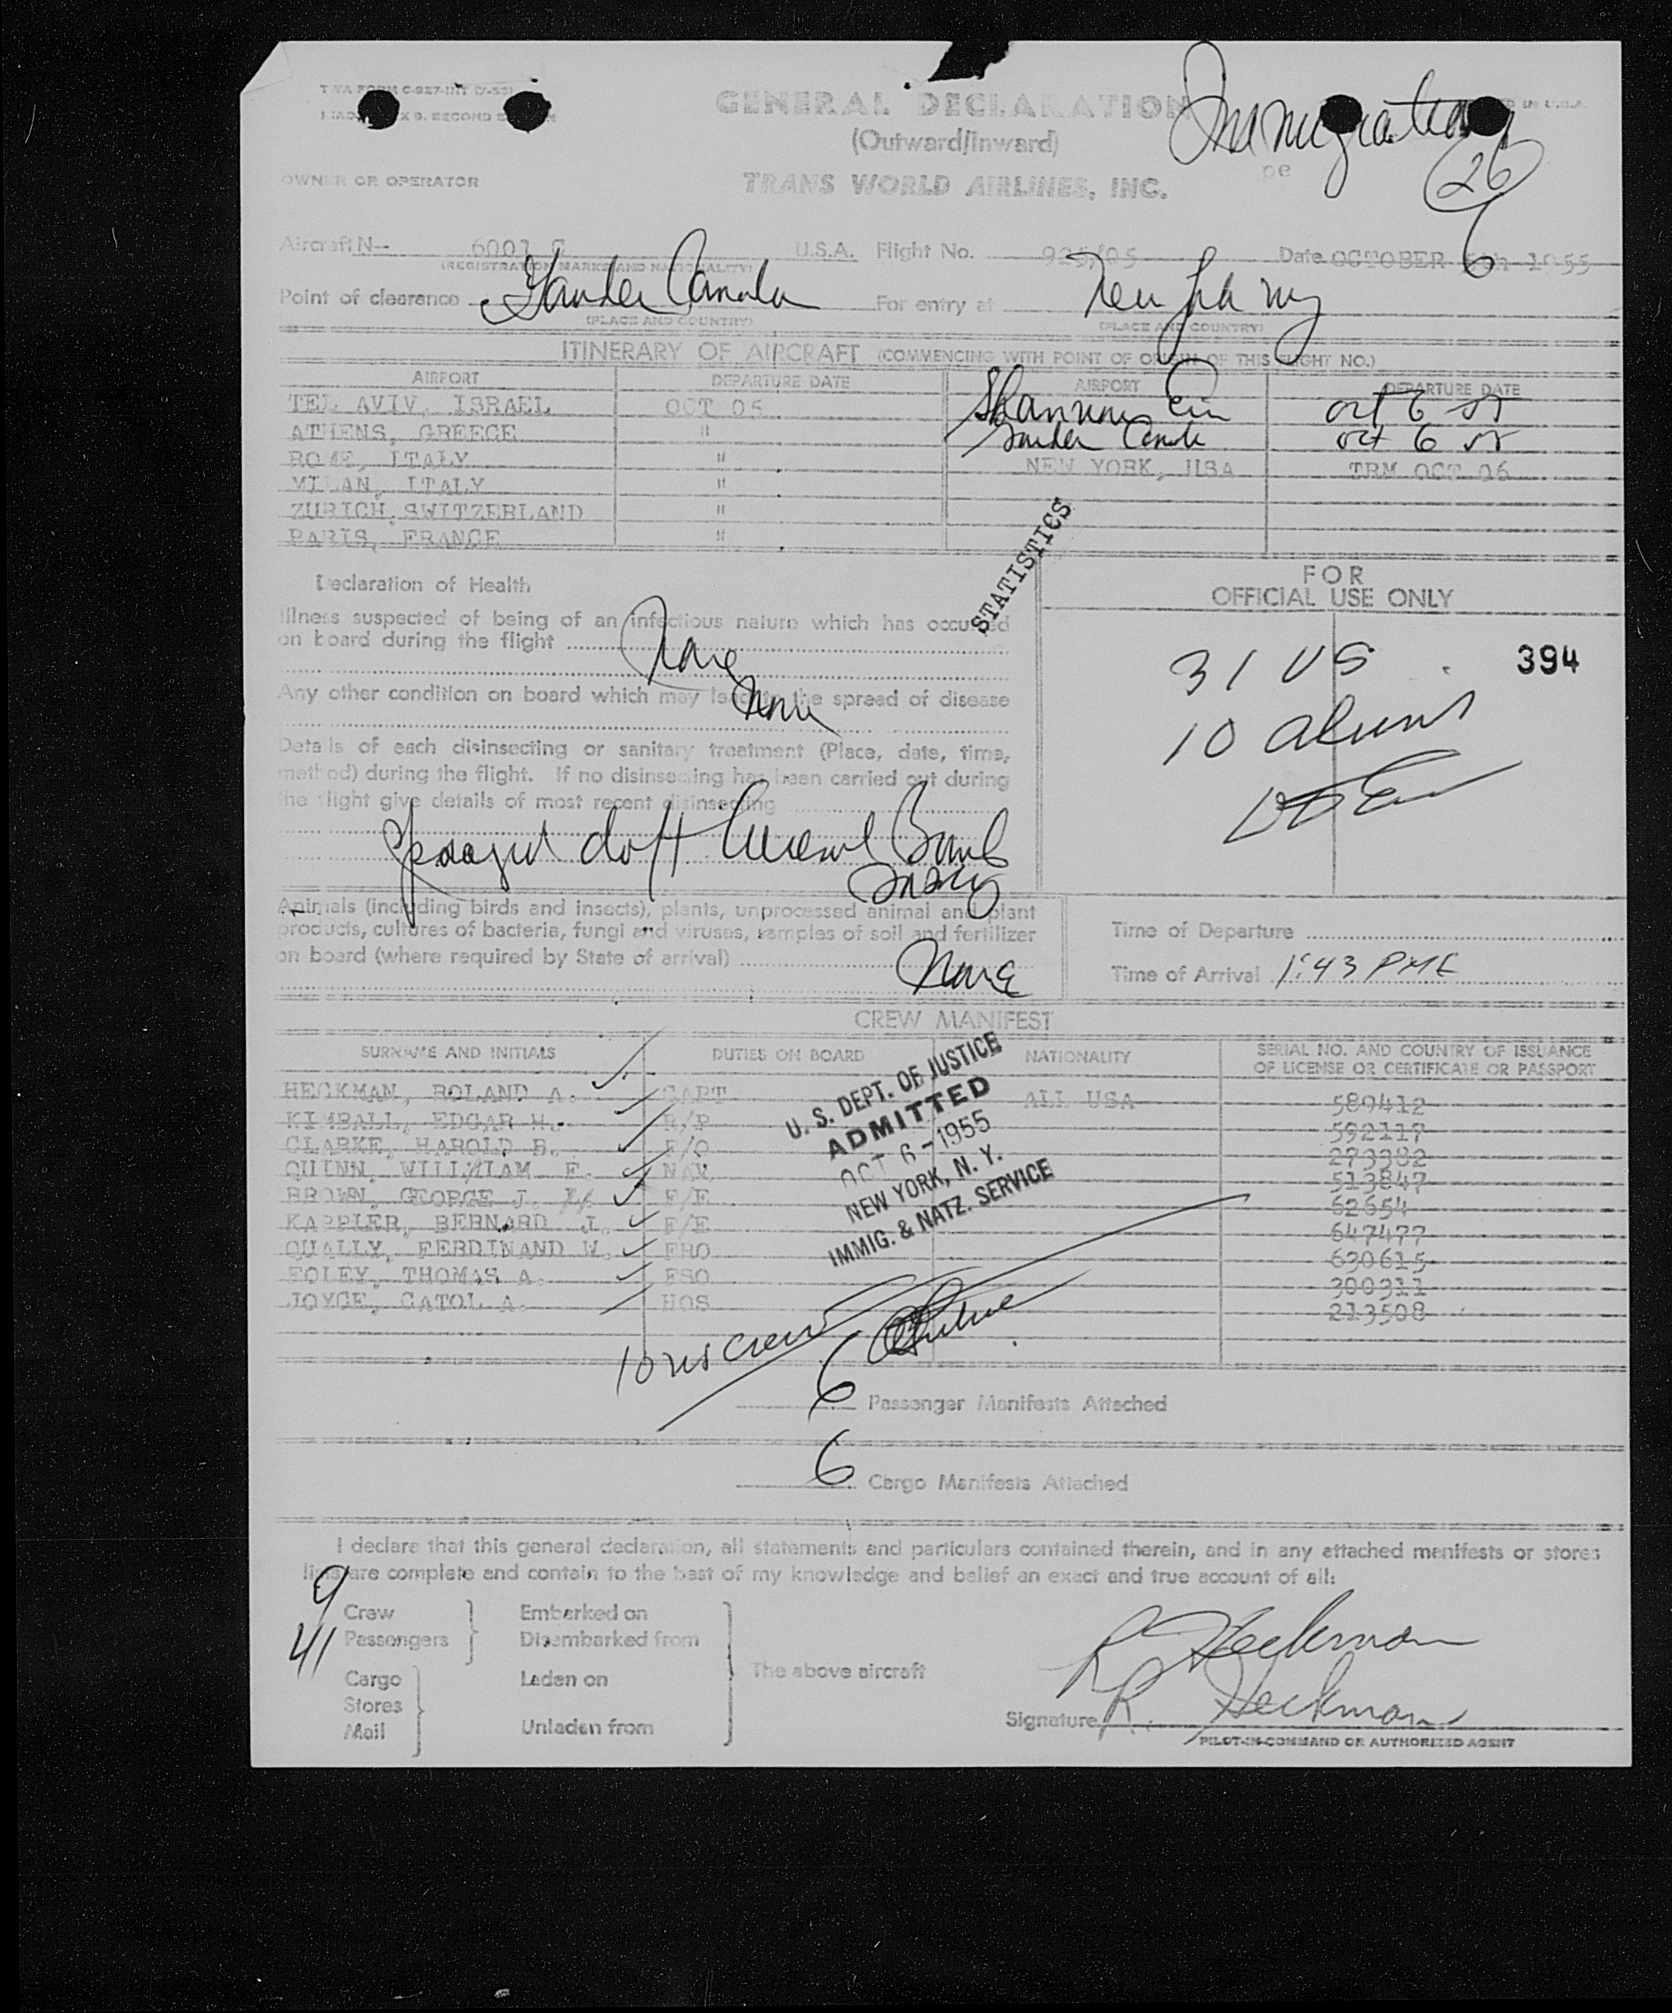 GENERAL DECLARATION
(Outward/Inward)
Immigration
26
OWNER OR OPERATOR
TRANS WORLD AIRLINES, INC.
Aircraft N-- 6001 C U.S.A. Flight No. 925/05 Date OCTOBER 6th 1955
(REGISTRATION MARKS AND NATIONALITY)
Point of clearance Gander Canada For entry at New York NY
(PLACE AND COUNTRY) (PLACE AND COUNTRY)
ITINERARY OF AIRCRAFT (COMMENCING WITH POINT OF ORIGIN OF THIS FLIGHT NO.)
AIRPORT DEPARTURE DATE AIRPORT DEPARTURE DATE
TEL AVIV, ISRAEL OCT 05 Shannon Eir Oct 6
ATHENS, GREECE " Gander Canada Oct 6
ROME, ITALY " NEW YORK, USA TRM OCT 06
MILAN, ITALY "
ZURICH, SWITZERLAND "
PARIS, FRANCE "
STATISTICS
Declaration of Health
Illness suspected of being of an infectious nature which has occurred
on board during the flight None
Any other condition on board which may lead to the spread of disease
None
Details of each disinsecting or sanitary treatment (Place, date, time,
method) during the flight. If no disinsecting has been carried out during
the flight give details of most recent disinsecting
Bomb
FOR
OFFICIAL USE ONLY
31 US
394
10 aliens
Animals (including birds and insects), plants, unprocessed animal and plant
products, cultures of bacteria, fungi and viruses, samples of soil and fertilizer
on board (where required by State of arrival) None
Time of Departure
Time of Arrival 1:43 PME
CREW MANIFEST
SURNAME AND INITIALS DUTIES ON BOARD NATIONALITY SERIAL NO. AND COUNTRY OF ISSUANCE
OF LICENSE OR CERTIFICATE OR PASSPORT
HECKMAN, ROLAND A. CAPT ALL USA 589412
KIMBALL, EDGAR H. 592117
CLARKE, HAROLD B. F/O 273382
QUINN, WILLMIAM F. NAV 513847
BROWN, GEORGE J. F/E 62654
KAPPLER, BERNARD J. F/E 647477
QUALLY, FERDINAND W. FRO 630615
FOLEY, THOMAS A. FSO 300311
JOYCE, CATOL A. HOS 213508
U. S. DEPT. OF JUSTICE
ADMITTED
OCT 6 - 1955
NEW YORK, N. Y.
IMMIG. & NATZ. SERVICE
10 us crew
6 Passenger Manifests Attached
6 Cargo Manifests Attached
I declare that this general declaration, all statements and particulars contained therein, and in any attached manifests or stores
lists are complete and contain to the best of my knowledge and belief an exact and true account of all:
9 Crew Embarked on
41 Passengers Disembarked from
Cargo Laden on The above aircraft
Stores
Mail Unladen from
R Heckman
Signature R. Heckman
PILOT-IN-COMMAND OR AUTHORIZED AGENT